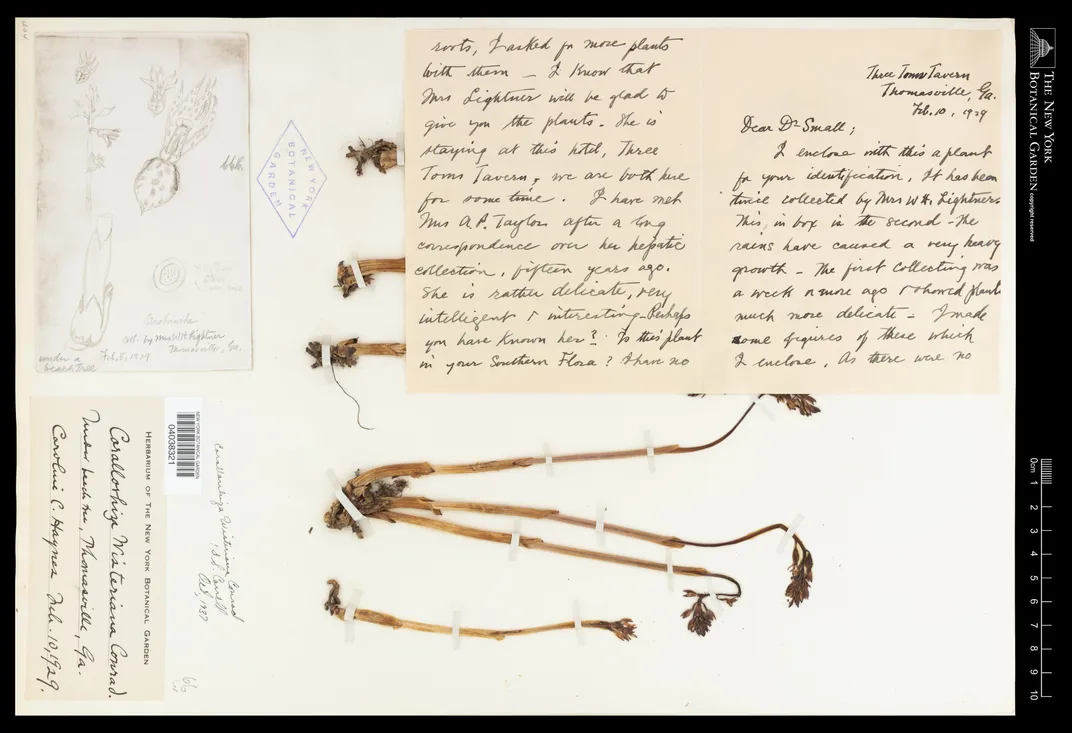 Three Toms Tavern
Thomasville, Ga.
Feb. 10, 1929
Dear Dr Small;
I enclose with this a plant
for your identification. It has been
twice collected by Mrs W. H. Lightner.
This, in box is the second - The
rains have caused a very heavy
growth - The first collecting was
a week or more ago & showed plants
much more delicate - I made
some figures of these which
I enclose. As there were no
roots, I asked for more plants
with them - I know that
Mrs Lightner will be glad to
give you the plants. She is
staying at this hotel, Three
Toms Tavern, we are both here
for some time. I have met
Mrs A. P. Taylor after a long
correspondence over her hepatic
collection, fifteen years ago.
She is rather delicate, very
intelligent & interesting - Perhaps
you have known her? Is this plant
in your Southern Flora? I have no
NEW YORK
BOTANICAL
GARDEN
Orobanche
coll. by Mrs W H Lightner
Thomasville, Ga.
Feb, 8, 1929
under a
beach tree
HERBARIUM OF THE NEW YORK BOTANICAL GARDEN
Corallorhiza Wisteriana Conrad.
Under beech tree, Thomasville, Ga.
Caroline C. Haynes Feb. 10, 1929.
NEW YORK BOTANICAL GARDEN
04038321
Corallorhiza Wisteriana Conrad
Oct, 1937
66
THE NEW YORK
BOTANICAL GARDEN
copyright reserved
0cm 1 2 3 4 5 6 7 8 9 10